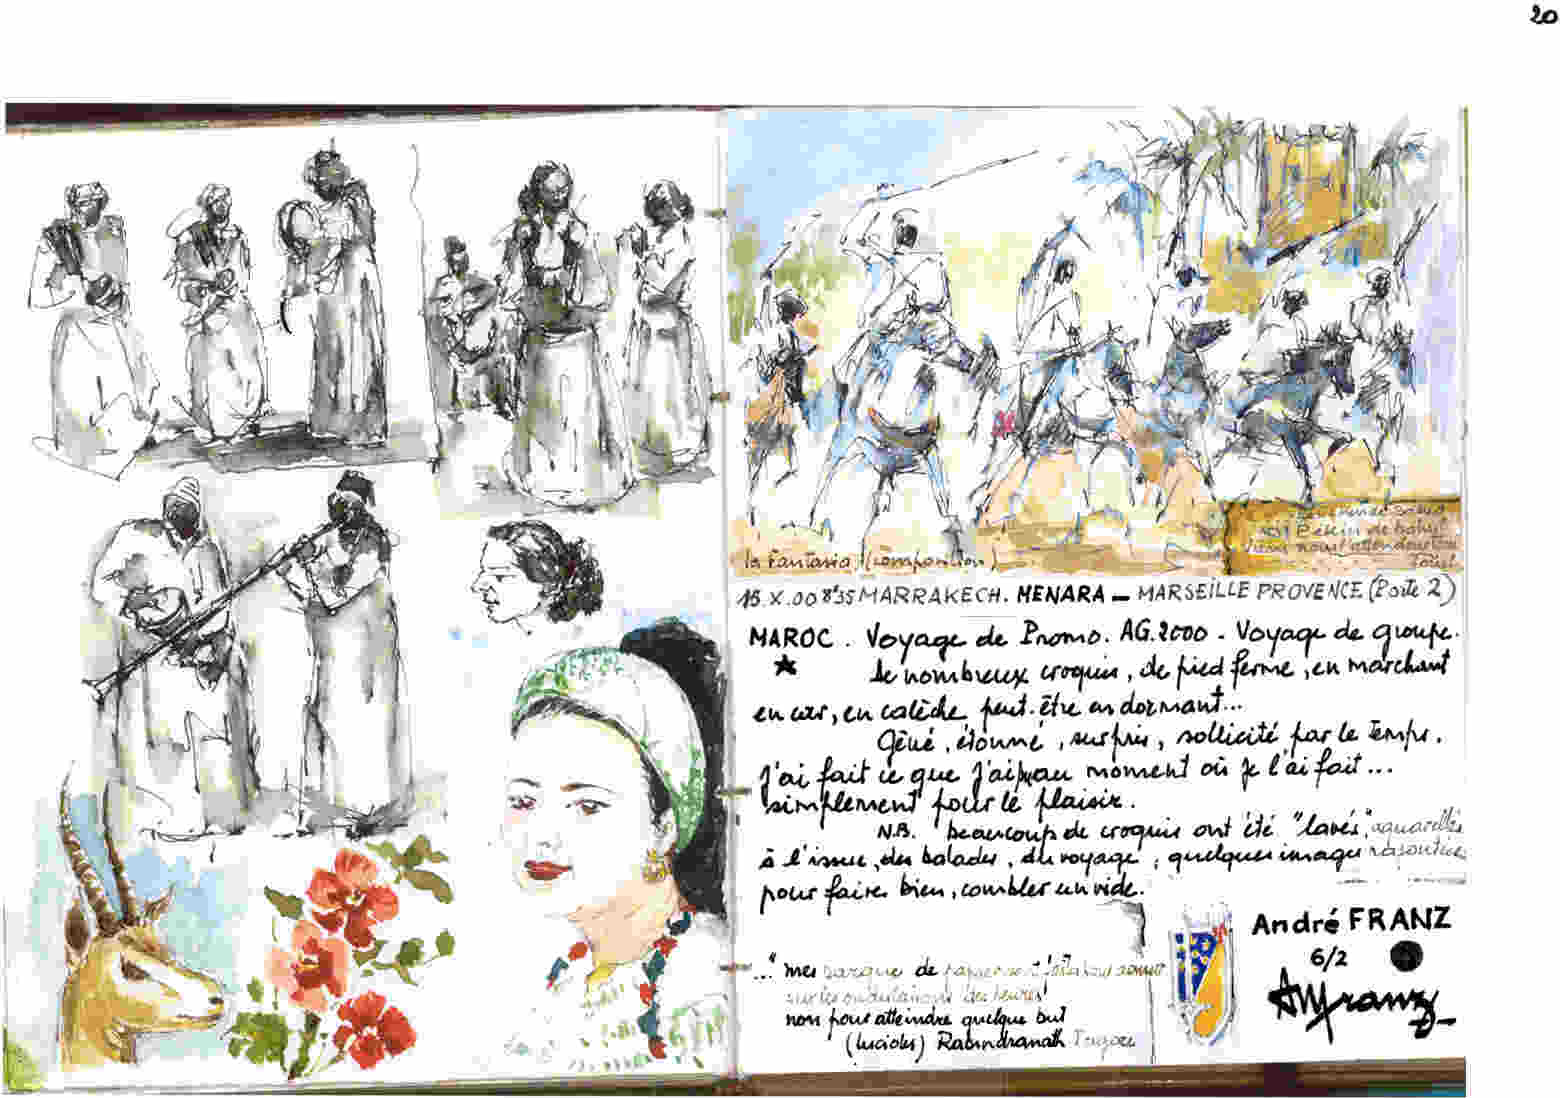 20
la Fantasia (composition)
15.X.00 8h35 MARRAKECH. MENARA – MARSEILLE PROVENCE (Porte 2)
MAROC. Voyage de Promo. AG.2000 - Voyage de groupe.
de nombreux croquis, de pied ferme, en marchant
en car, en calèche peut-être en dormant...
Gêné, étonné, surpris, sollicité par le temps.
J'ai fait ce que j'ai pu au moment où je l'ai fait...
simplement pour le plaisir.
N.B. beaucoup de croquis ont été "lavés", aquarellés
à l'issue, des balades, du voyage, quelques images rajoutées
pour faire bien, combler un vide.
..." mes barques de papier
sur les ondulations des heures
non pour atteindre quelque but
(lucioles) Rabindranath Tagore
André FRANZ
6/2
AFranz